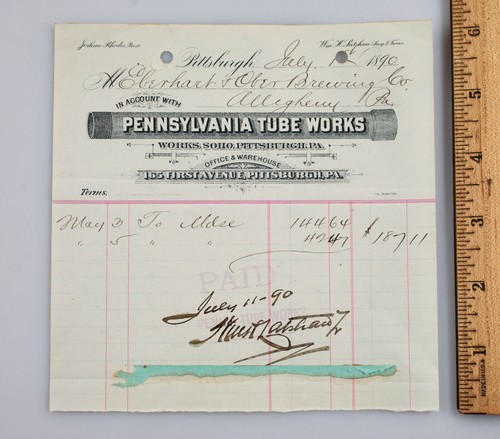 Joshua Rhodes, Prest.
Wm. H. Latshaw, Sec'y & Treas.
Pittsburgh, July 1st 1890
M Eberhart & Ober Brewing Co.
Allegheny Pa.
IN ACCOUNT WITH
PENNSYLVANIA TUBE WORKS
WORKS, SOHO, PITTSBURGH, PA.
OFFICE & WAREHOUSE
165 FIRST AVENUE, PITTSBURGH, PA.
Terms,
May 3 To Mdse 144 64
" 5 " " 42 47 $ 187 11
PAID
July 11-90
PENN TUBE WORKS
Latshaw Tr
6
5
4
3
2
1